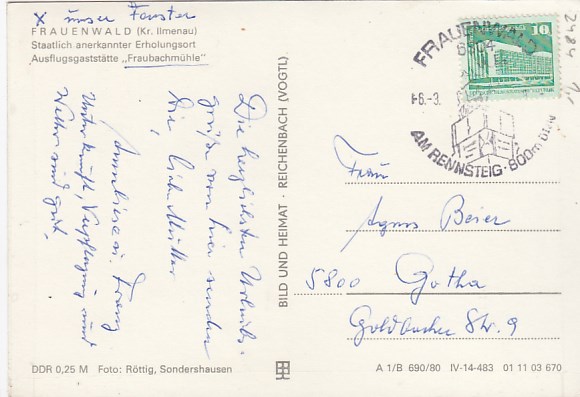 x unser Fenster
FRAUENWALD (Kr. Ilmenau)
Staatlich anerkannter Erholungsort
Ausflugsgaststätte „Fraubachmühle"
Die herzlichsten Urlaubs-
grüße von hier senden
Die, liebe Mutter
Anneliese u. Franz
Unterkunft, Verpflegung und
Wetter sind gut.
BILD UND HEIMAT · REICHENBACH (VOGTL)
FRAUENWALD
6304
-6.-3.
AM RENNSTEIG · 800m ü.
10
2484
Frau
Agnes Beier
5800 Gotha
Goldbacher Str. 9
DDR 0,25 M Foto: Röttig, Sondershausen
A 1/B 690/80 IV-14-483 01 11 03 670